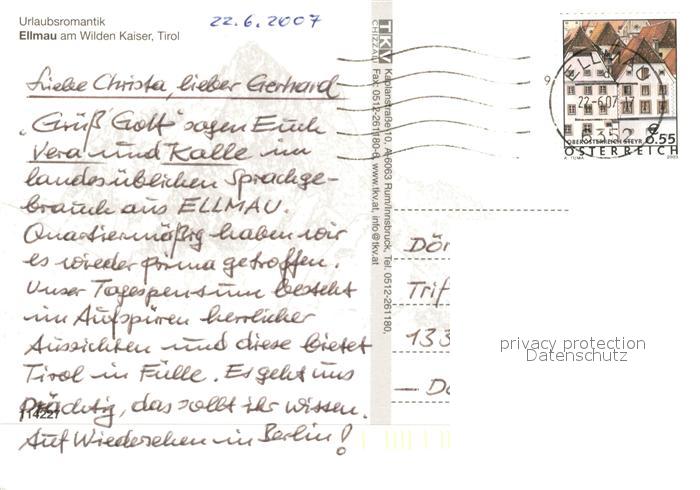 Urlaubsromantik
Ellmau am Wilden Kaiser, Tirol
22.6.2007
Liebe Christa, lieber Gerhard
"Grüß Gott" sagen Euch
Vera und Kalle im
landesüblichen Sprachge-
brauch aus ELLMAU.
Quartiermäßig haben wir
es wieder prima getroffen.
Unser Tagespensum besteht
im Aufspüren herrlicher
Aussichten und diese bietet
Tirol in Fülle. Es geht uns
prächtig, das sollt ihr wissen.
Auf Wiedersehen in Berlin!
114227
TKV
CHIZZALI
Kaplanstraße 10, A-6063 Rum/Innsbruck, Tel. 0512-261180,
Fax: 0512-261180-6, www.tkv.at, info@tkv.at
ELLMAU
22.-6.07
6352
0.55
OBERÖSTERREICH STEYR
ÖSTERREICH
2003
Dör
Trif
133
privacy protection
Datenschutz